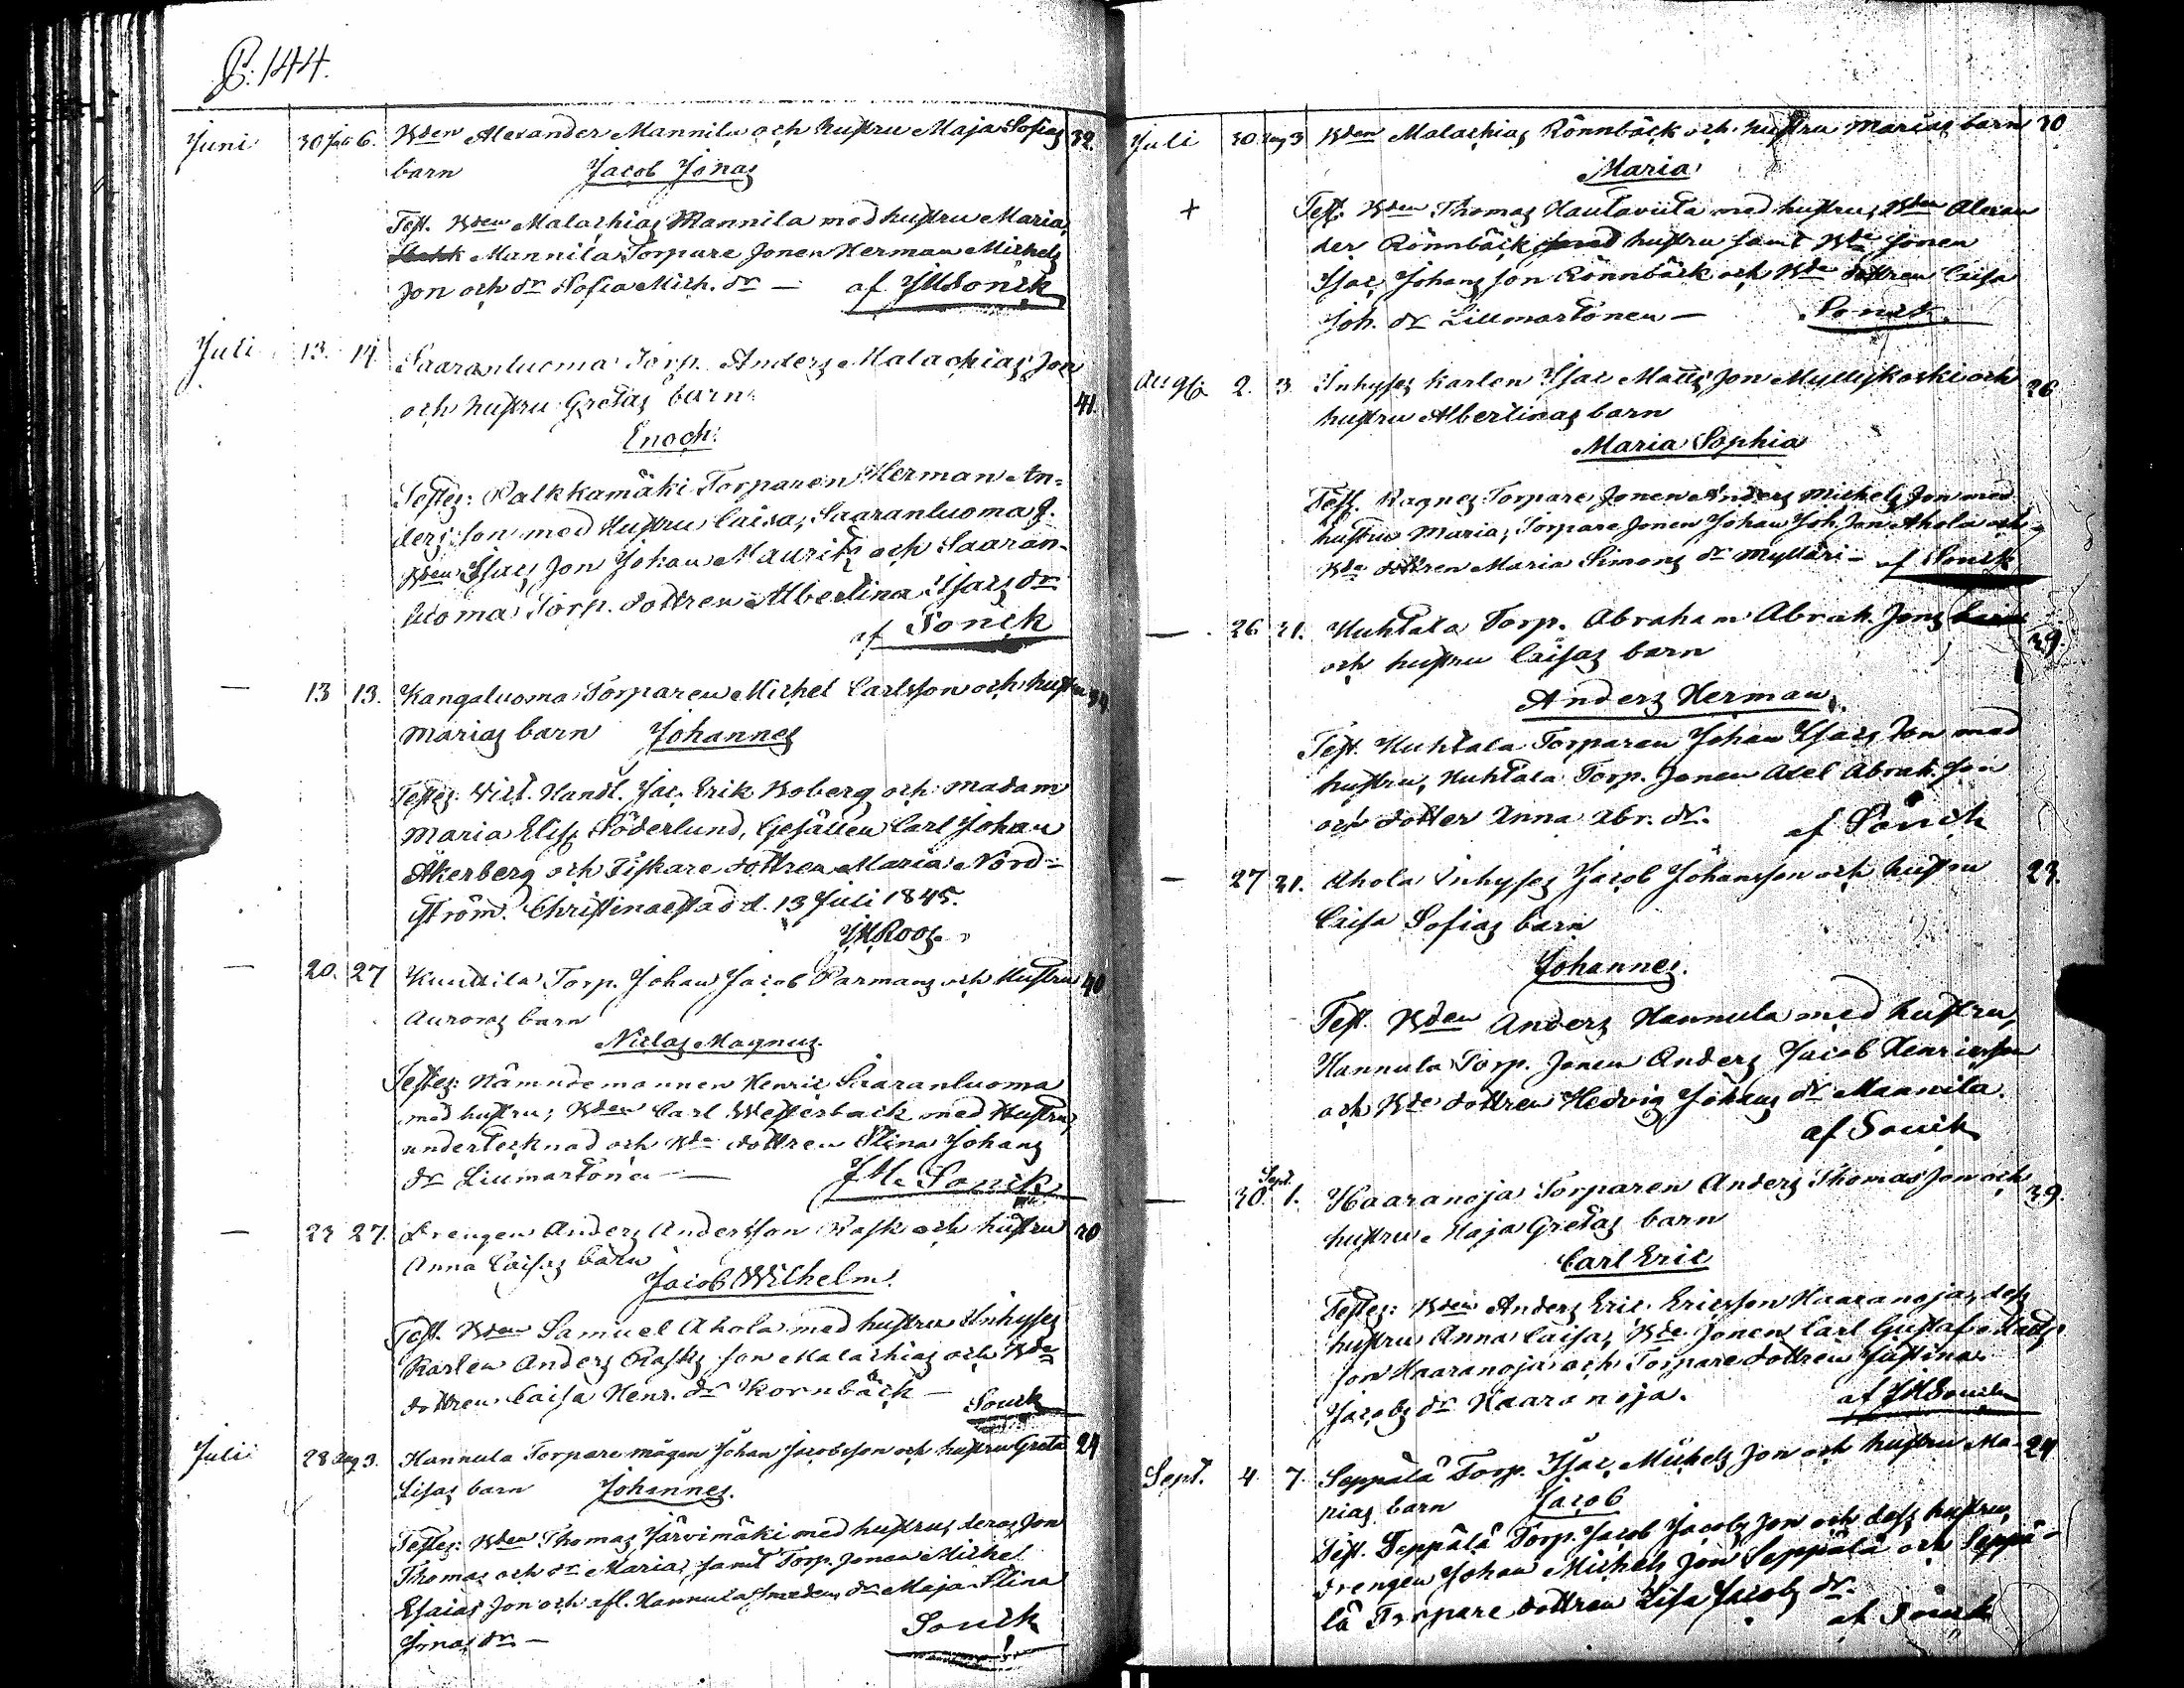 P. 144.
Juni 30 Juli 6. Bden Alexander Mannila och hustru Maja Sofias 32.
barn Jacob Jonas
Test. Bden Malachias Mannila med hustru Maria,
Mannila Torpare sonen Herman Michels
son och dr Sofia Mich. dr — af JMSonck
Juli 13. 14. Saaranluoma Torp. Anders Malachias son
och hustru Gretas barn 41.
Enoch.
Testes: Palkkamäki Torparen Herman An-
ders son med Hustru Caisa, Saaranluoma
Bden Isacs son Johan Maurits och Saaran-
luoma Torp. dottren Albertina Isacs dr
af Sonck
— 13 13. Kangaluoma Torparen Michel Carlsson och hustru
Marias barn Johannes
Testes: Vict. Handl. Jac. Erik Boberg och Madam
Maria Elis. Söderlund, Gesällen Carl Johan
Åkerberg och Fiskare dottren Maria Nord-
ström. Christinaestad d. 13 Juli 1845.
Roos.
— 20. 27 Knuttila Torp. Johan Jacob Parmans och Hustru 40
Auroras barn
Niclas Magnus.
Testes: Nämndemannen Henric Saaranluoma
med hustru; Bden Carl Westerback med Hustru,
undertecknad och Bde dottren Stina Johans
dr Lillmårtone — JM. Sonck
— 23 27. Drengen Anders Andersson Rask och hustru 30
Anna Caisas barn
Jacob Wilhelm.
Test. Bden Samuel Ahola med hustru Inhyses
Karlen Anders Rasks son Malachias och Bde
dottren Caisa Henr. dr Kornbäck —
Sonck
Juli 28 Aug 3. Hannula Torpare mågen Johan Jacobsson och hustru Greta 24
Lisas barn Johannes.
Testes: Bden Thomas Järvimäki med hustru, deras son
Thomas och dr Maria, samt Torp. sonen Michel
Esaias son och afl. Hannula Smedens dr Maja Stina
Jonas dr —
Sonck
Juli 30 Aug 3 Bden Malachias Rönnbäck och hustru Marias barn 30
Maria
+ Test. Bden Thomas Hautaviita med hustru, Bden Alexan
der Rönnbäck med hustru samt Bde sonen
Isac Johans son Rönnbäck och Bde dottren Caisa
Joh. dr Lillmårtonen — Sonck.
Aug. 2. 3. Inhyses Karlen Isac Matts son Myllykoski och 26
hustru Albertinas barn
Maria Sophia
Test. Ragnes Torpare sonen Anders Michels son med
hustru Maria, Torpare sonen Johan Joh. son Ahola och
Bde dottren Maria Simons dr Mylläri — af Sonck
— 26 31. Huhtala Torp. Abraham Abrah. sons
och hustru Caisas barn 39.
Anders Herman.
Test. Huhtala Torparen Johan Isacs son med
hustru, Huhtala Torp. sonen Axel Abrah. son
och dotter Anna Abr. dr. af Sonck
— 27 31. Ahola Inhyses Jacob Johansson och hustru 23.
Caisa Sofias barn
Johannes.
Test. Bden Anders Hannula med hustru,
Hannula Torp. sonen Anders Jacob Henricsson
och Bde dottren Hedvig Johans dr Mannila.
af Sonck
— 30. Sept. 1. Haaranoja Torparen Anders Thomas son och 39.
hustru Maja Gretas barn
Carl Eric
Testes: Bden Anders Eric Ericsson Haaranoja, dess
hustru Anna Caisa, Bde sonen Carl Gustaf Matts
son Haaranoja och Torpare dottren Justina
Jacobs dr Haaranoja. af JMSonck
Sept. 4. 7. Seppälä Torp. Isac Michels son och hustru Ma- 24
rias barn Jacob
Test. Seppälä Torp. Jacob Jacobs son och dess hustru,
drengen Johan Michels son Seppälä och Seppä-
lä Torpare dottren Lisa Jacobs dr.
af Sonck